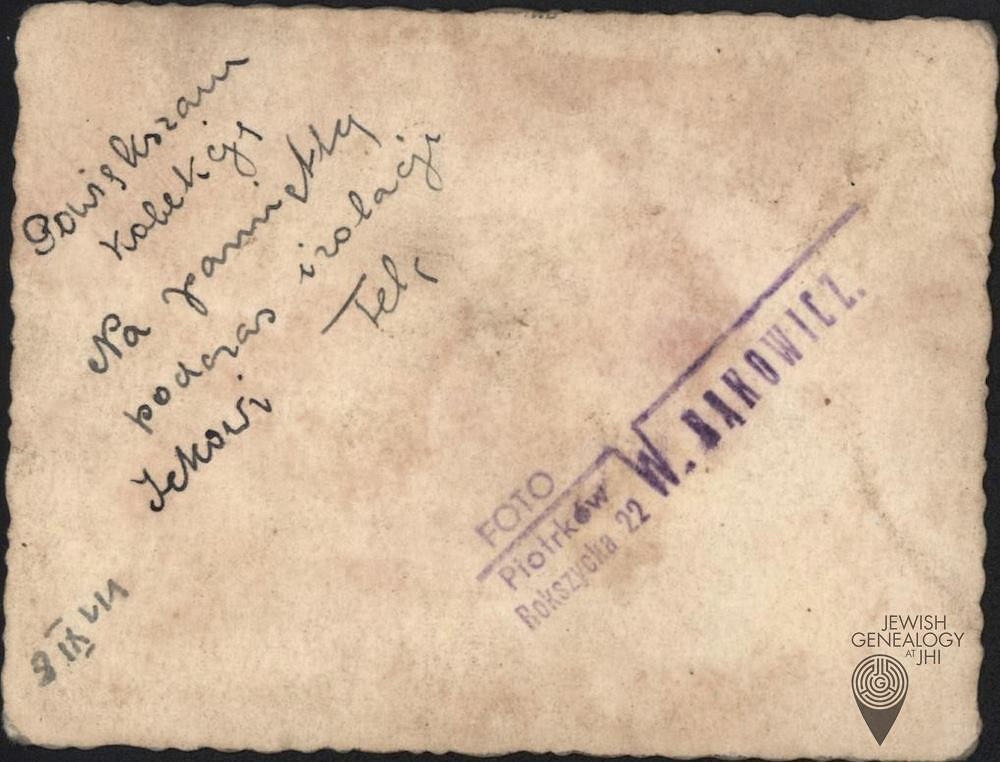 Powiększam
kolekcję
Na pamiątkę
podczas izolacji
Ickowi
Fela
8 IX
FOTO
Piotrków
Rokszycka 22
W. BĄKOWICZ.
JEWISH
GENEALOGY
AT JHI